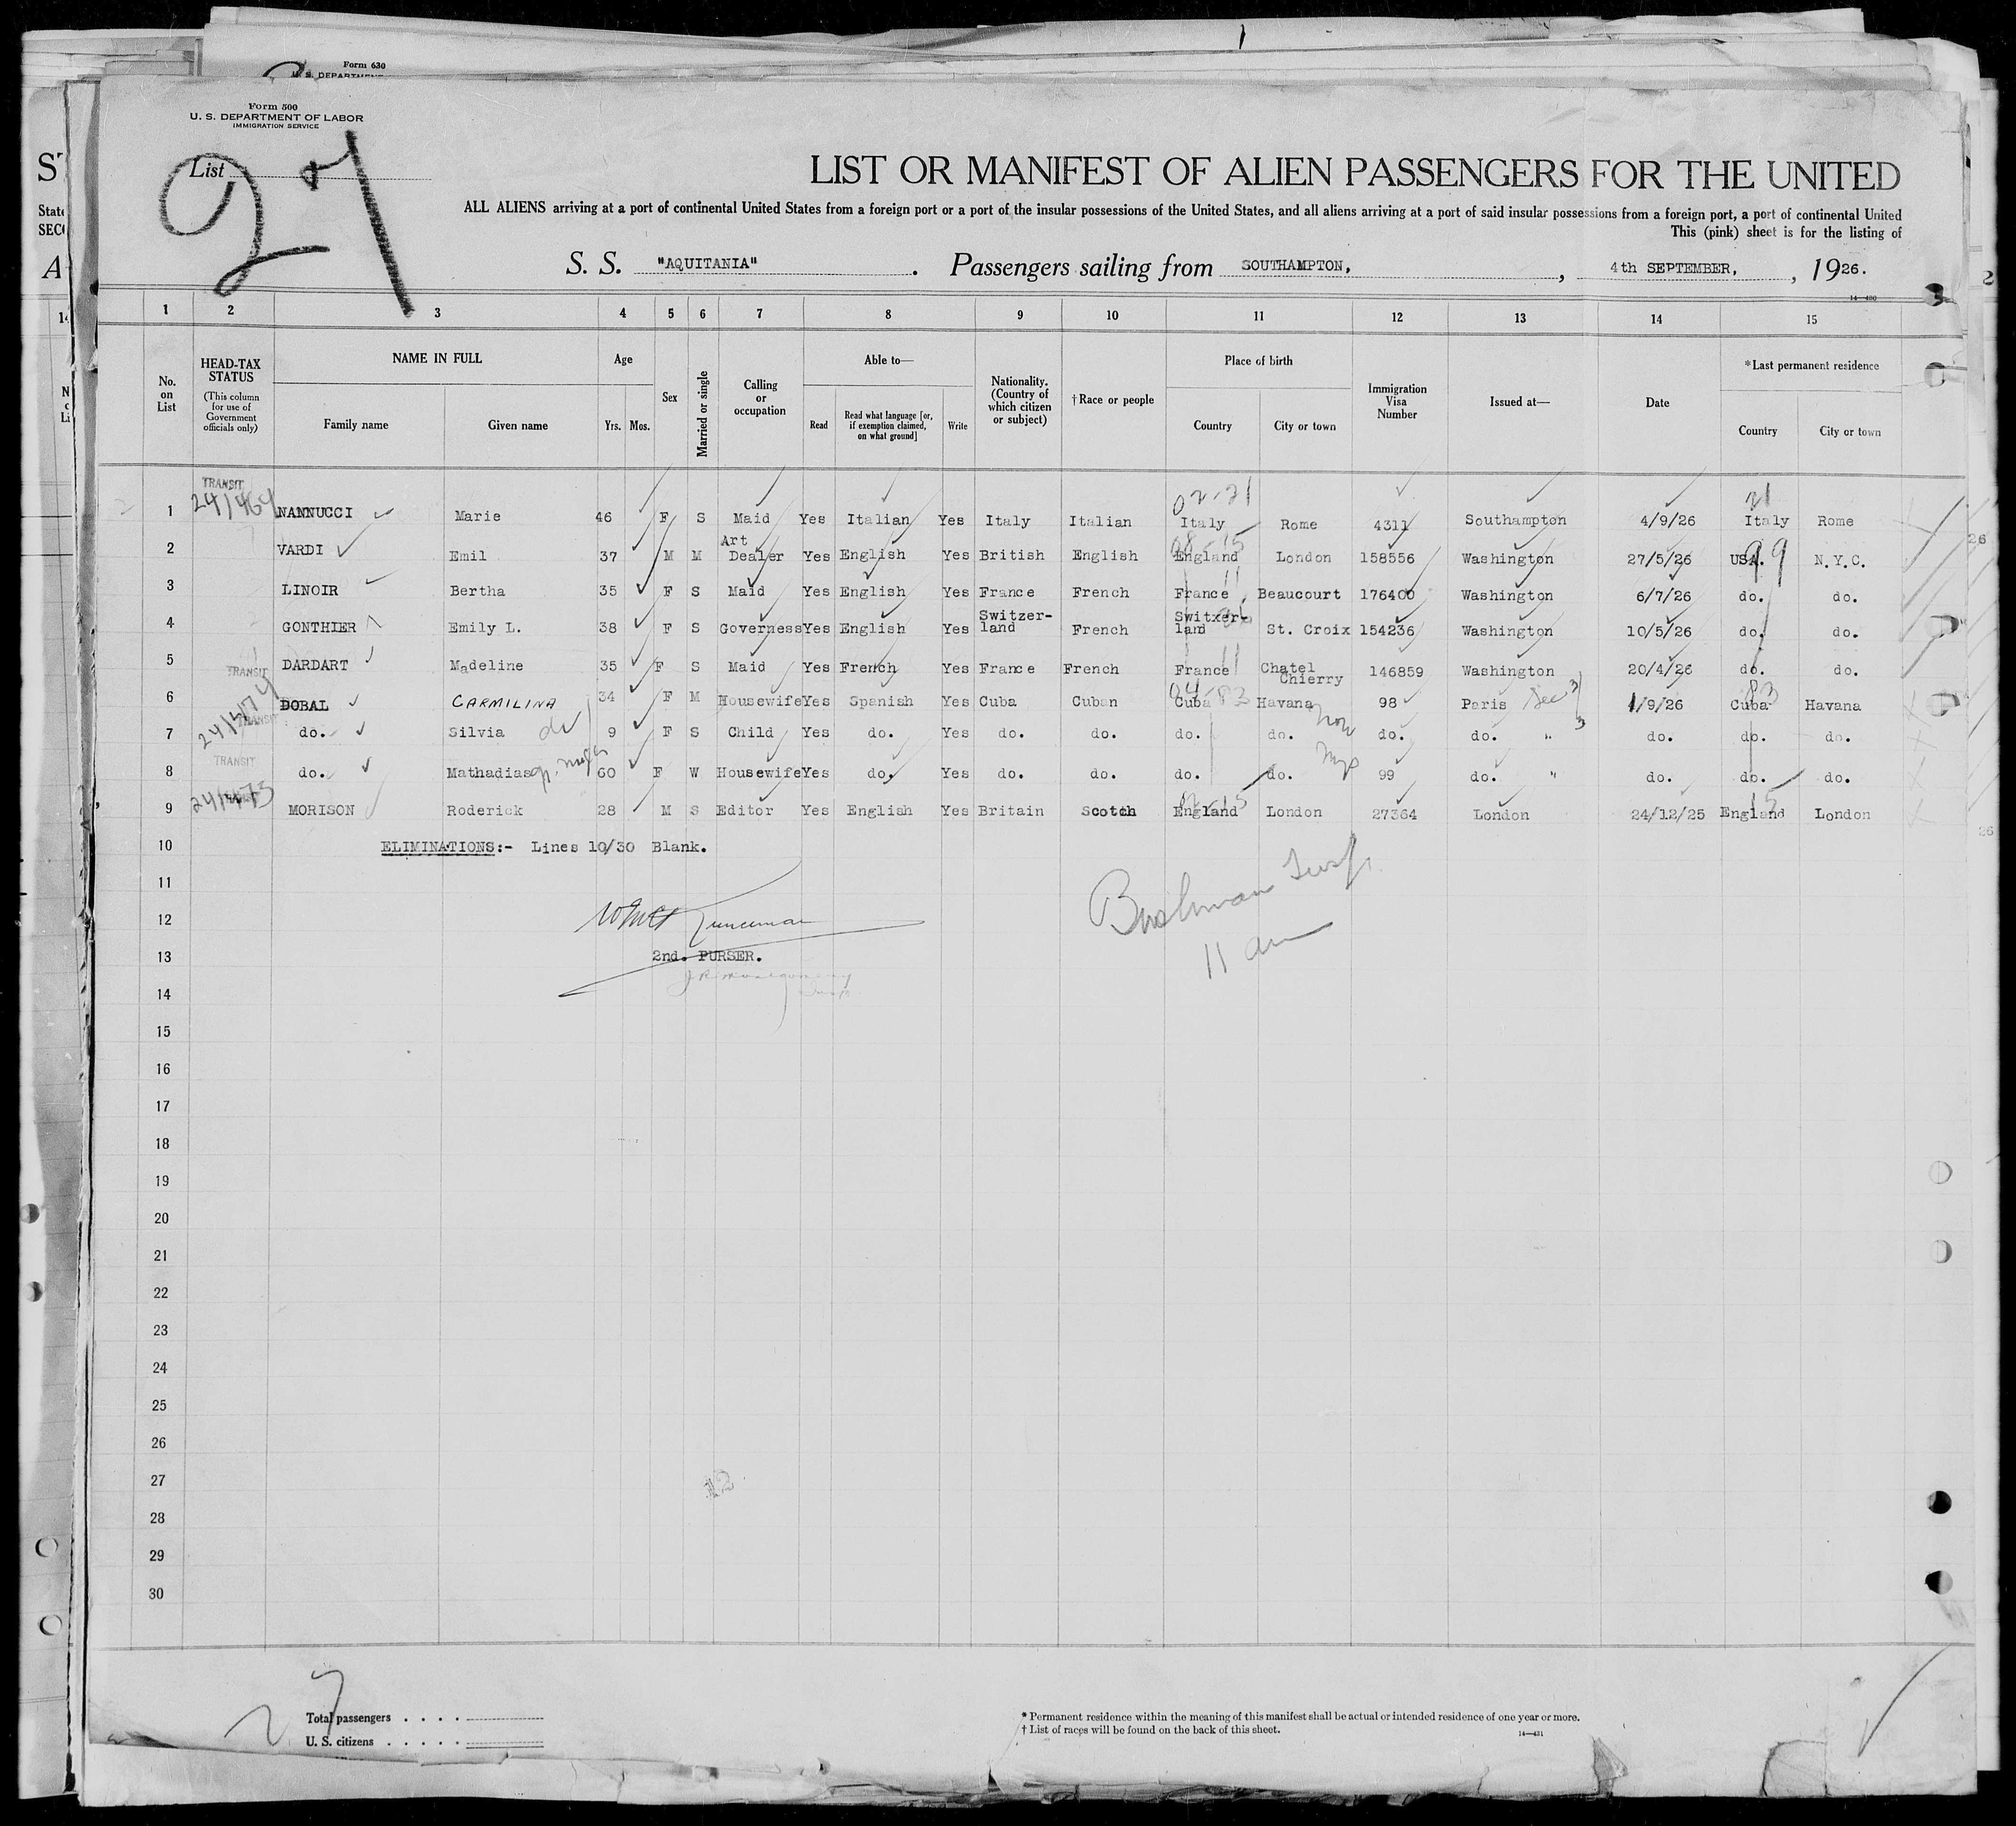 Form 630
U. S. DEPARTMENT
Form 500
U. S. DEPARTMENT OF LABOR
IMMIGRATION SERVICE
List 27
LIST OR MANIFEST OF ALIEN PASSENGERS FOR THE UNITED
ALL ALIENS arriving at a port of continental United States from a foreign port or a port of the insular possessions of the United States, and all aliens arriving at a port of said insular possessions from a foreign port, a port of continental United
This (pink) sheet is for the listing of
S. S. "AQUITANIA" . Passengers sailing from SOUTHAMPTON, , 4th SEPTEMBER, , 1926.
14—430
1 2 3 4 5 6 7 8 9 10 11 12 13 14 15
No. on List
HEAD-TAX STATUS
(This column for use of Government officials only)
NAME IN FULL
Family name Given name
Age
Yrs. Mos.
Sex
Married or single
Calling or occupation
Able to—
Read Read what language [or, if exemption claimed, on what ground] Write
Nationality. (Country of which citizen or subject)
†Race or people
Place of birth
Country City or town
Immigration Visa Number
Issued at—
Date
*Last permanent residence
Country City or town
TRANSIT
02-21 21
1 24/464 NANNUCCI Marie 46 F S Maid Yes Italian Yes Italy Italian Italy Rome 4311 Southampton 4/9/26 Italy Rome
08-15 99
2 VARDI Emil 37 M M Art Dealer Yes English Yes British English England London 158556 Washington 27/5/26 USA. N.Y.C.
3 LINOIR Bertha 35 F S Maid Yes English Yes France French France Beaucourt 176400 Washington 6/7/26 do. do.
4 GONTHIER Emily L. 38 F S Governess Yes English Yes Switzer-land French Switxer-land St. Croix 154236 Washington 10/5/26 do. do.
5 DARDART Madeline 35 F S Maid Yes French Yes France French France Chatel Chierry 146859 Washington 20/4/26 do. do.
TRANSIT
04-83 83
6 DOBAL CARMILINA 34 F M Housewife Yes Spanish Yes Cuba Cuban Cuba Havana 98 Paris Sec 3 1/9/26 Cuba Havana
TRANSIT
7 do. Silvia 9 F S Child Yes do. Yes do. do. do. do. do. do. " do. do. do.
TRANSIT
8 do. Mathadias 60 F W Housewife Yes do. Yes do. do. do. do. 99 do. " do. do. do.
15
9 24/473 MORISON Roderick 28 M S Editor Yes English Yes Britain Scotch England London 27364 London 24/12/25 England London
10 ELIMINATIONS:- Lines 10/30 Blank.
11
12
13 2nd. PURSER.
11 am
14
15
16
17
18
19
20
21
22
23
24
25
26
27
12
28
29
30
Total passengers . . . .
U. S. citizens . . . . .
* Permanent residence within the meaning of this manifest shall be actual or intended residence of one year or more.
† List of races will be found on the back of this sheet.
14—431